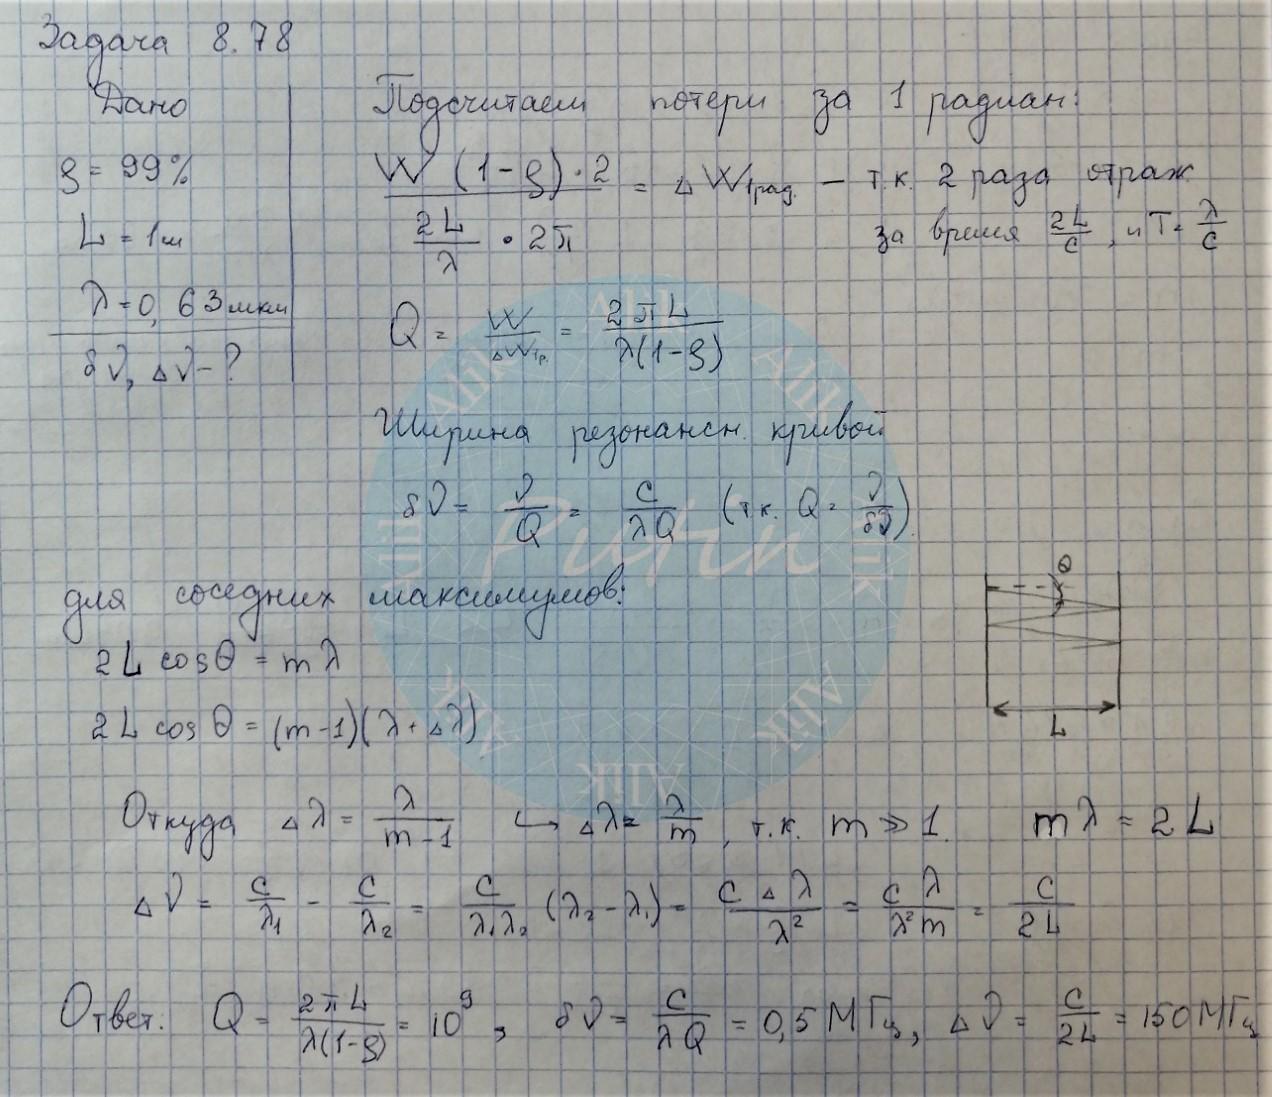 Задача 8.78
Дано
ρ = 99%
L = 1м
λ = 0,63 мкм
δν, Δν - ?
Подсчитаем потери за 1 радиан:
W (1-ρ)·2 / (2L/λ · 2π) = ΔW1рад. – т.к. 2 раза отраж
за время 2L/c, и T = λ/c
Q = W/ΔW1р. = 2πL / λ(1-ρ)
Ширина резонансн. кривой
δν = ν/Q = c/λQ (т.к. Q = ν/δν).
для соседних максимумов:
2L cosθ = mλ
2L cosθ = (m-1)(λ+Δλ)
θ
L
Откуда Δλ = λ/(m-1) ↳ Δλ = λ/m, т.к. m ≫ 1. mλ = 2L
Δν = c/λ₁ - c/λ₂ = c/λ₁λ₂ (λ₂-λ₁) = cΔλ/λ² = cλ/λ²m = c/2L
Ответ: Q = 2πL/λ(1-ρ) = 10⁹, δν = c/λQ = 0,5 МГц, Δν = c/2L = 150 МГц
Alik
Alik
Alik
Alik
Alik
Alik
Alik
Alik